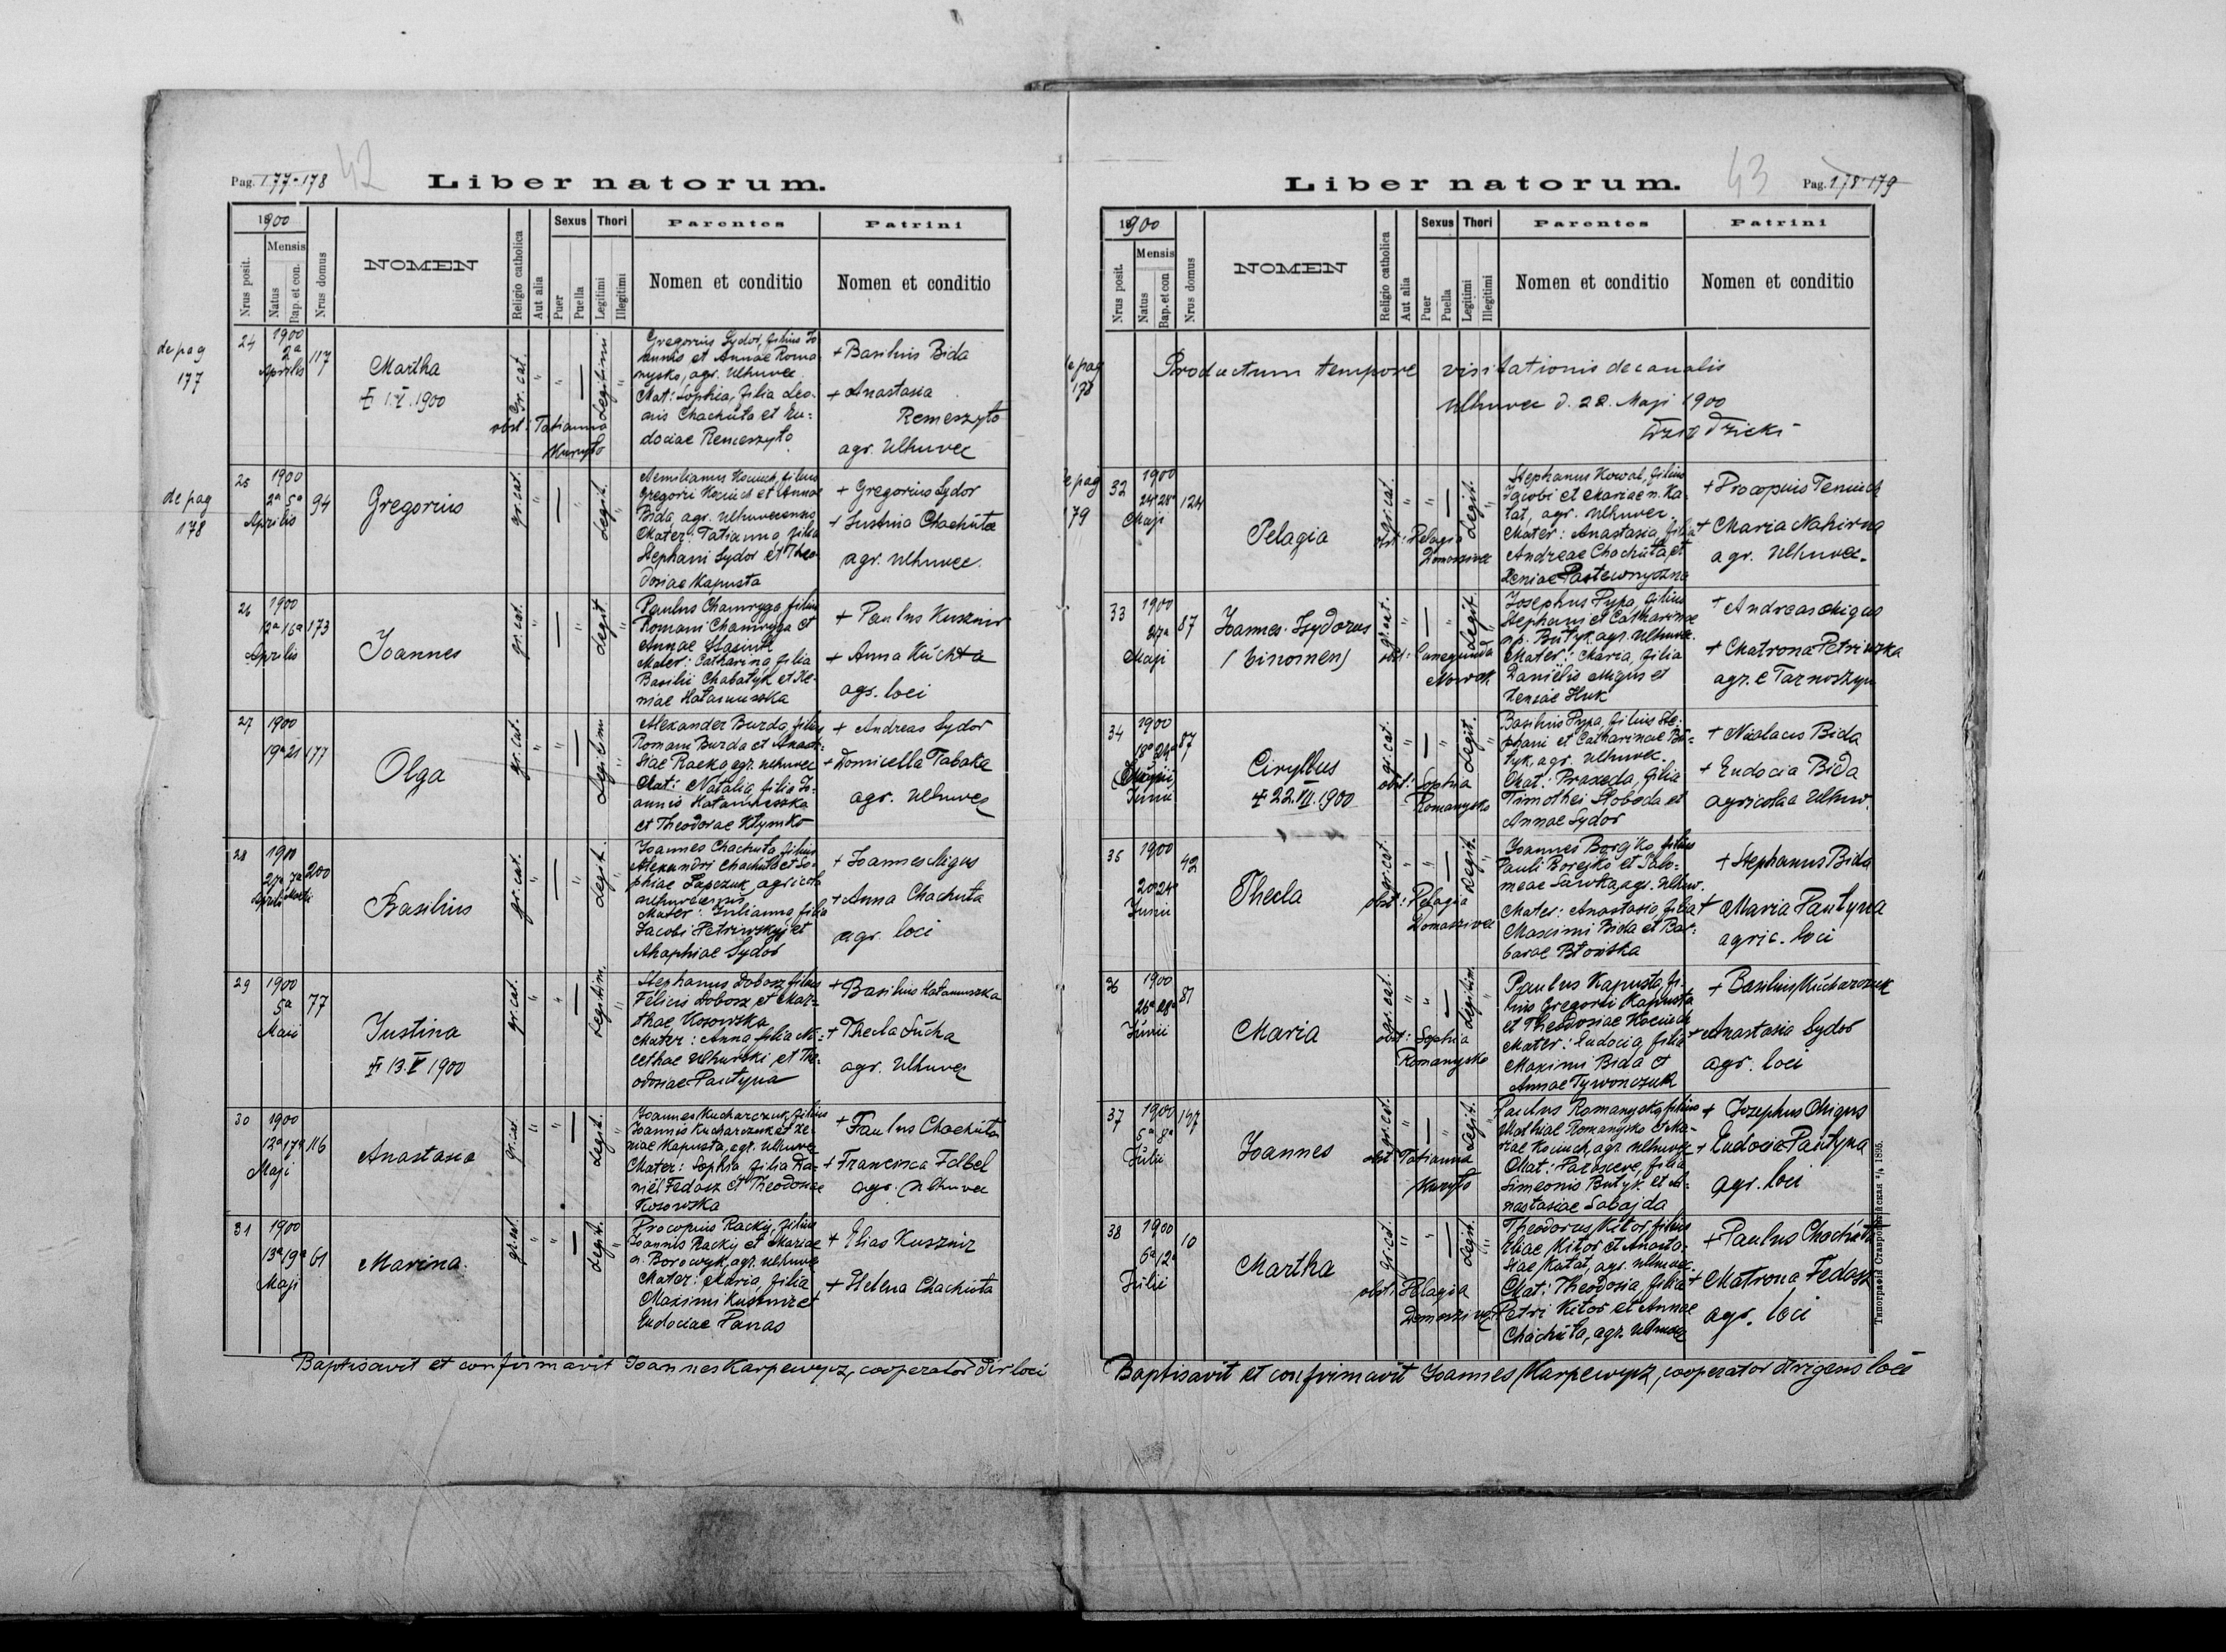 Pag. 177-178
42
Liber natorum.
1900
Nrus posit.
Mensis
Natus
Bap. et con.
Nrus domus
NOMEN
Religio catholica
Aut alia
Sexus
Puer
Puella
Thori
Legitimi
Illegitimi
Parentes
Nomen et conditio
Patrini
Nomen et conditio
de pag
177
24
1900
2a
Aprilis
117
Martha
I.V.1900
Gr. cat.
obst: Tatianna
Kuryło
Legitimi
Gregorius Sydor, filius Jo
annis et Annae Roma
nysko, agr. Ulhuvec
Mat: Sophia, filia Leo-
nis Chachuta et Eu-
dociae Remeszyło
+ Basilius Bida
+ Anastasia
Remeszyło
agr. Ulhuvec
de pag
178
25
1900
2a 5a
Aprilis
94
Gregorius
gr. cat.
Legit.
Aemilianus Kociuch, filius
Gregorii Kociuch et Annae
Bida, agr. Ulhuvecensis
Mater: Tatianna, filia
Stephani Sydor et Theo-
dosiae Kapusta
+ Gregorius Sydor
+ Justina Chachuta
agr. Ulhuvec.
26
1900
12a 16a
Aprilis
173
Joannes
gr. cat.
Legit.
Paulus Chamryga, filius
Romani Chamryga et
Annae Stasiuk
Mater: Catharina, filia
Basilii Chabatyk et Xe-
niae Hatamuszka
+ Paulus Kusznir
+ Anna Kuchta
agr. loci
27
1900
19a 21
177
Olga
gr. cat.
Legitimi
Alexander Burda, filius
Romani Burda et Anast-
siae Racka agr. Ulhuvec
Mat: Natalia, filia Jo-
annis Hatamuszka
et Theodorae Klymko
+ Andreas Sydor
+ Domicella Tabaka
agr. Ulhuvec
28
1900
27a 7a
Aprilis Maii
200
Basilius
gr. cat.
Legit.
Joannes Chachuta, filius
Alexandri Chachuta et So-
phiae Lapczuk, agricola
ulhuvecensis
Mater: Julianna, filia
Jacobi Petriwskyj et
Ahaphiae Sydor
+ Joannes Migus
+ Anna Chachuta
agr. loci
29
1900
5a
Maii
77
Justina
13.V 1900
gr. cat.
Legitim.
Stephanus Dobosz, filius
Felicis Dobosz et Mar-
thae Kosowska
Mater: Anna, filia Ni-
cethae Ulhurski et The-
odosiae Pautyna
+ Basilius Hatamuszka
+ Thecla Sucha
agr. Ulhuvec
30
1900
12a 17a
Maji
116
Anastasia
gr. cat.
Legit.
Joannes Kucharczuk, filius
Joannis Kucharczuk et Xe-
niae Kapusta, agr. Ulhuvec
Mater: Sophia, filia Da-
niël Fedasz et Theodosiae
Kosowska
+ Paulus Chachuta
+ Francisca Falbel
agr. Ulhuvec
31
1900
13a 19a
Maji
61
Marina
gr. cat.
Legit.
Procopius Racky, filius
Joannis Racky et Mariae
n. Borowyk, agr. Ulhuvec
Mater: Maria, filia
Maximi Kusznir et
Eudociae Panas
+ Elias Kusznir
+ Helena Chachuta
Baptisavit et confirmavit Joannes Karpewycz, cooperator dir loci
43
Pag. 178-179
Liber natorum.
1900
Nrus posit.
Mensis
Natus
Bap. et con
Nrus domus
NOMEN
Religio catholica
Aut alia
Sexus
Puer
Puella
Thori
Legitimi
Illegitimi
Parentes
Nomen et conditio
Patrini
Nomen et conditio
e pag
178
Productum tempore visitationis decanalis
Ulhuvec d. 22. Maji 1900
e pag
179
32
1900
24a 28a
Maji
124
Pelagia
gr. cat.
obst: Pelagia
Domaszivec
Legit.
Stephanus Kowal, filius
Jacobi et Mariae n. Ka-
tat, agr. Ulhuvec.
Mater: Anastasia, filia
Andreae Chachuta, et
Xeniae Pastewnyczna
+ Procopius Teniuch
+ Maria Nahirna
agr. Ulhuvec.
33
1900
27a
Maji
87
Joannes-Isydorus
(binomen)
gr. cat.
obst: Cunegunda
Nowak
Legit
Josephus Pypa, filius
Stephani et Catharinae
n. p. Butyk, agr. Ulhuvec.
Mater: Maria, filia
Danielis Migus et
Xeniae Huk
+ Andreas Migus
+ Matrona Petriczka
agr. e Tarnoszyn
34
1900
18a 24a
Junii
87
Cirylbus
22.VII.1900
gr. cat.
obst: Sophia
Romanysko
Legit.
Basilius Pypa, filius Ste-
phani et Catharinae Bu-
tyk, agr. Ulhuvec.
Mat: Praxeda, filia
Timothei Sloboda et
Annae Sydor
+ Nicolaus Bida
+ Eudocia Bida
agricolae Ulhuv.
35
1900
20a 24a
Junii
42
Thecla
gr. cat.
obst: Pelagia
Domaszivec
Legit.
Joannes Borejko, filius
Pauli Borejko et Salo-
meae Sawka, agr. Ulhuv.
Mater: Anastasia, filia
Maximi Bida et Bar-
barae Btońska
+ Stephanus Bida
+ Maria Pautyna
agric. loci
36
1900
26a 28a
Junii
81
Maria
gr. cat.
obst: Sophia
Romanysko
Legitim.
Paulus Kapusta, fi-
lius Gregorii Kapusta
et Theodosiae Kociuch
Mater: Eudocia, filia
Maximi Bida et
Annae Tywonczuk
+ Basilius Kucharczuk
+ Anastasia Sydor
agr. loci
37
1900
5a 8a
Julii
197
Joannes
gr. cat.
obst: Tatianna
Kuryło
Legit.
Paulus Romanysko, filius
Mathiae Romanysko et Ma-
riae Kociuch, agr. Ulhuvec
Mat: Parasceve, filia
Simeonis Butyk et A-
nastasiae Sabajda
+ Josephus Migus
+ Eudocia Pautyna
agr. loci
38
1900
6a 12a
Julii
10
Martha
gr. cat.
obst: Pelagia
Domaszivec
Legit.
Theodorus Kitor, filius
Eliae Kitor et Anasta-
siae Katat, agr. Ulhuvec.
Mat: Theodosia, filia
Petri Kitor et Annae
Chachuta, agr. Ulhuvec
+ Paulus Chachuta
+ Matrona Fedasz
agr. loci
Baptisavit et confirmavit Joannes Karpewycz, cooperator dirigens loci